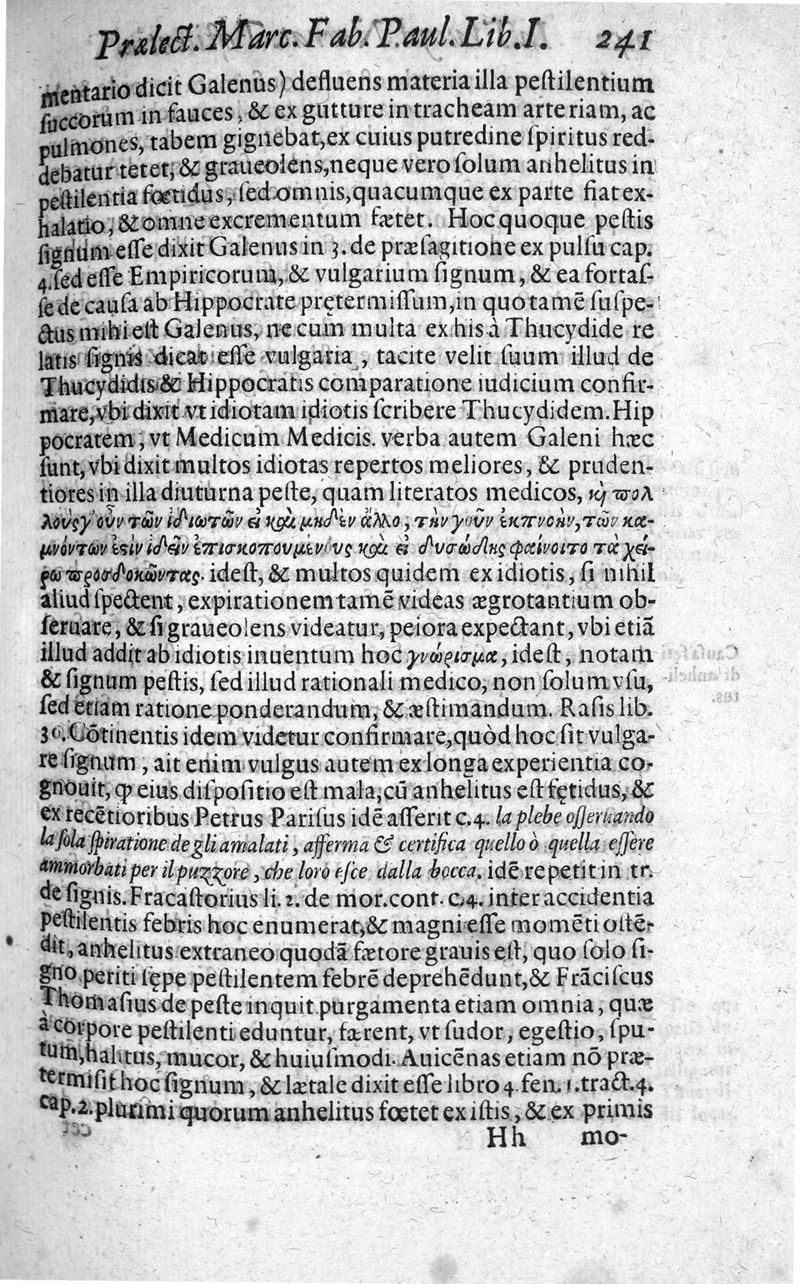 Prælect. Marc. Fab. Paul. Lib. I. 241
mentario dicit Galenus) defluens materia illa peſtilentium
ſuccorum in fauces, & ex gutture in tracheam arteriam, ac
pulmones, tabem gignebat, ex cuius putredine ſpiritus red-
debatur teter, & graueolens, neque vero ſolum anhelitus in
peſtilentia fœtidus, ſed omnis, quacumque ex parte fiat ex-
halatio, & omne excrementum fætet. Hoc quoque peſtis
ſignum eſſe dixit Galenus in 3. de præſagitione ex pulſu cap.
4. ſed eſſe Empiricorum, & vulgarium ſignum, & ea fortaſ-
ſe de cauſa ab Hippocrate prętermiſſum, in quo tamē ſuſpe-
ctus mihi eſt Galenus, ne cum multa ex his à Thucydide re
latis ſignis dicat eſſe vulgaria, tacite velit ſuum illud de
Thucydidis & Hippocratis comparatione iudicium confir-
mare, vbi dixit vt idiotam idiotis ſcribere Thucydidem. Hip
pocratem, vt Medicum Medicis. verba autem Galeni hæc
ſunt, vbi dixit multos idiotas repertos meliores, & pruden-
tiores in illa diuturna peſte, quam literatos medicos, κὴ πολ
λοὺς γ' οὖν τῶν ἰδιωτῶν εἰ καὶ μηδὲν ἄλλο, τὴν γοῦν ἐκπνοὴν, τῶν κα-
μνόντων ἐςὶν ἰδεῖν ἐπισκοπουμένους καὶ εἰ δυσώδης φαίνοιτο τὰ χεί-
ρω προσδοκῶντας. ideſt, & multos quidem ex idiotis, ſi nihil
aliud ſpectent, expirationem tamē videas ægrotantium ob-
ſeruare, & ſi graueolens videatur, peiora expectant, vbi etiā
illud addit ab idiotis inuentum hoc γνώρισμα, ideſt, notam
& ſignum peſtis, ſed illud rationali medico, non ſolum vſu,
ſed etiam ratione ponderandum, & æſtimandum. Raſis lib.
30. Cōtinentis idem videtur confirmare, quòd hoc ſit vulga-
re ſignum, ait enim vulgus autem ex longa experientia co-
gnouit, ꝙ eius diſpoſitio eſt mala, cū anhelitus eſt fętidus, &
ex recētioribus Petrus Pariſus idē aſſerit c.4. la plebe oſſeruando
la ſola ſpiratione de gli amalati, afferma & certifica quello ò quella eſſere
ammorbati per il puzzore, che loro eſce dalla bocca. idē repetit in tr.
de ſignis. Fracaſtorius li. 2. de mor. cont. c.4. inter accidentia
peſtilentis febris hoc enumerat, & magni eſſe momēti oſtē-
dit, anhelitus extraneo quodā fætore grauis eſt, quo ſolo ſi-
gno periti ſępe peſtilentem febrē deprehēdunt, & Frāciſcus
Thomaſius de peſte inquit purgamenta etiam omnia, quæ
à corpore peſtilenti eduntur, fætent, vt ſudor, egeſtio, ſpu-
tum, halitus, mucor, & huiuſmodi. Auicēnas etiam nō præ-
termiſit hoc ſignum, & lætale dixit eſſe libro 4. fen. 1. tract. 4.
cap. 2. plurimi quorum anhelitus fœtet ex iſtis, & ex primis
Hh mo-